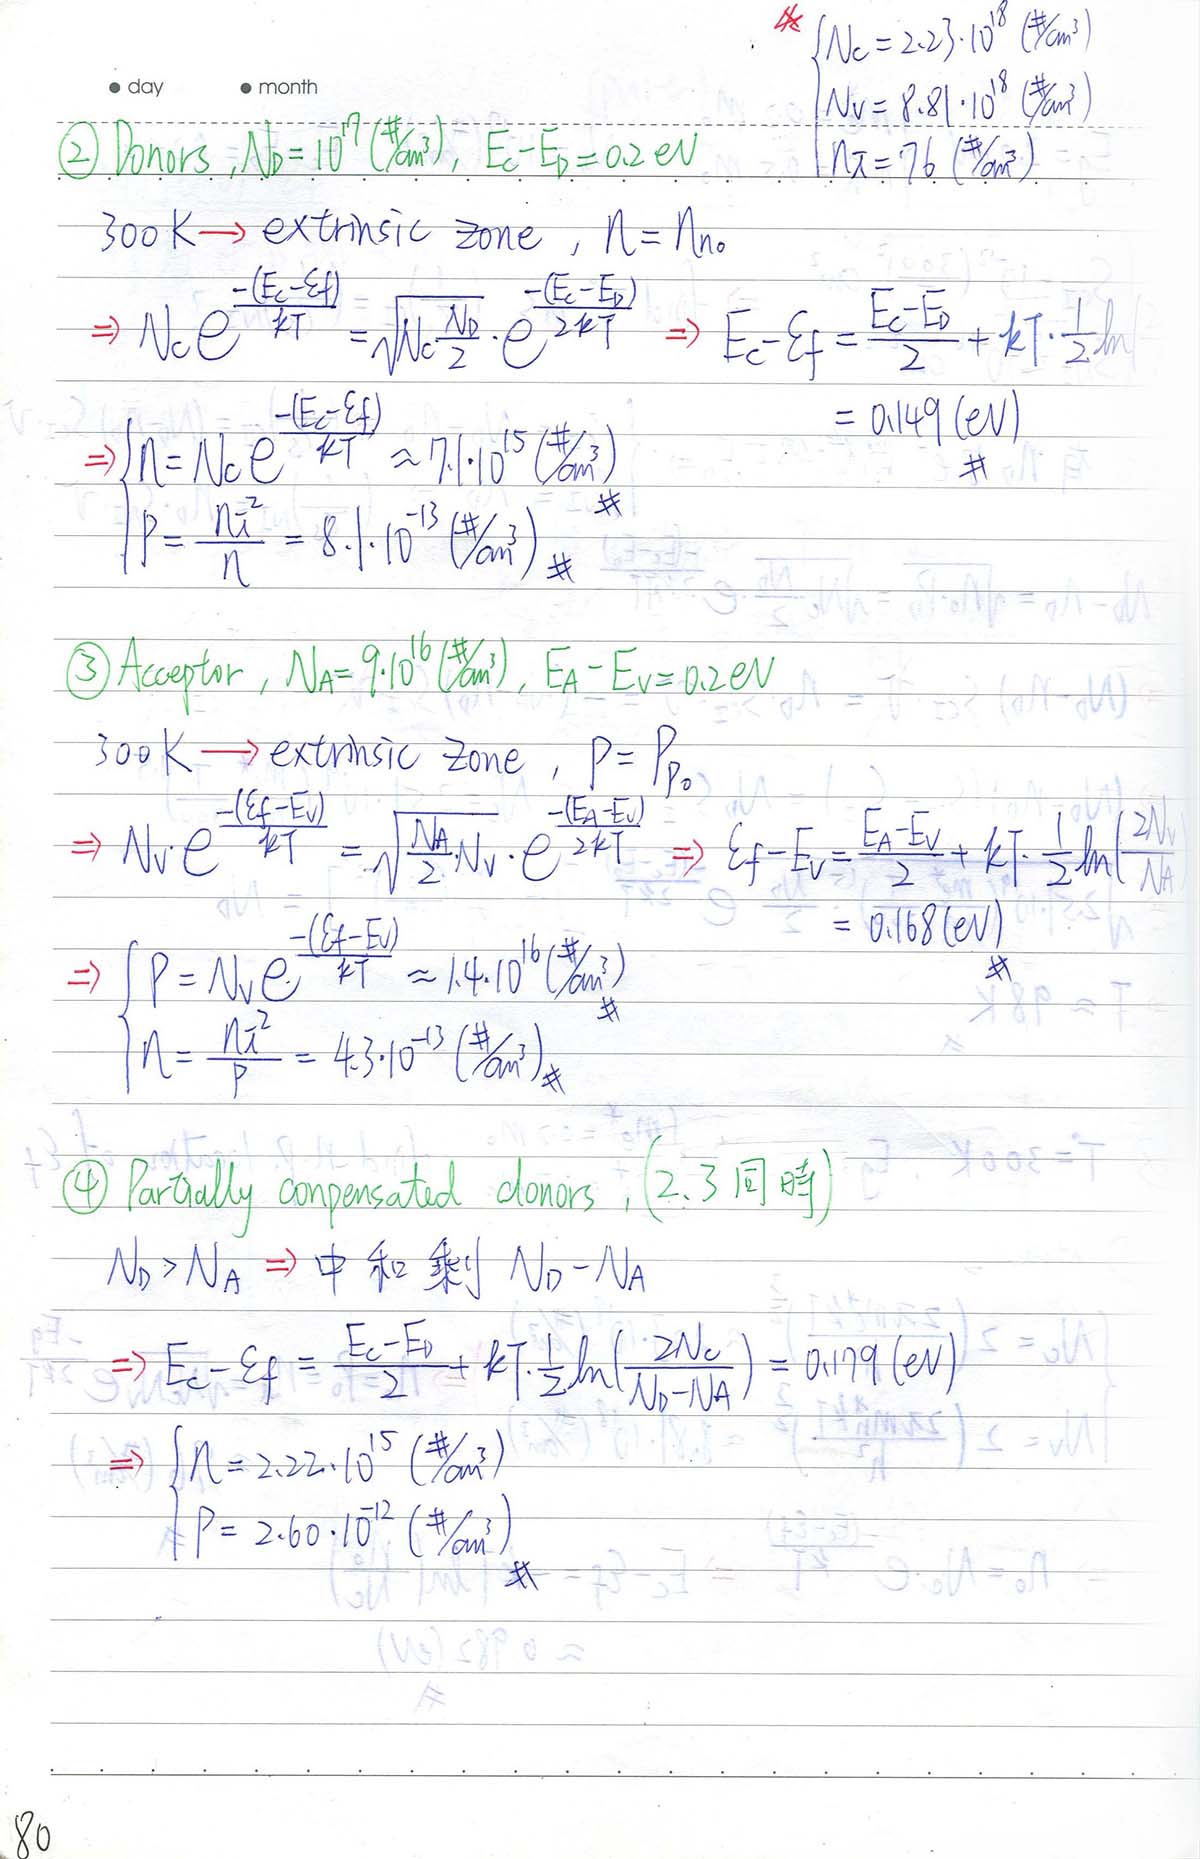 * { Nc = 2.23·10^18 (#/cm³)
● day ● month
Nv = 8.81·10^18 (#/cm³)
ni = 76 (#/cm³)
② Donors, N_D = 10^17 (#/cm³), Ec - E_D = 0.2 eV
300K → extrinsic zone, n = n_n₀
⇒ Nc e^(-(Ec-εf)/kT) = √(Nc N_D/2) · e^(-(Ec-E_D)/2kT) ⇒ Ec - εf = (Ec-E_D)/2 + kT · 1/2 ln(
= 0.149 (eV) #
⇒ { n = Nc e^(-(Ec-εf)/kT) ≈ 7.1·10^15 (#/cm³) #
p = ni²/n = 8.1·10^-13 (#/cm³) #
③ Acceptor, N_A = 9·10^16 (#/cm³), E_A - E_V = 0.2 eV
300K → extrinsic zone, p = p_p₀
⇒ Nv · e^(-(εf-Ev)/kT) = √(N_A/2 · Nv) · e^(-(E_A-Ev)/2kT) ⇒ εf - Ev = (E_A-Ev)/2 + kT · 1/2 ln(2Nv/N_A
= 0.168 (eV) #
⇒ { p = Nv e^(-(εf-Ev)/kT) ≈ 1.4·10^16 (#/cm³) #
n = ni²/p = 4.3·10^-13 (#/cm³) #
④ Partially conpensated donors, (2.3 同時)
N_D > N_A ⇒ 中和剩 N_D - N_A
⇒ Ec - εf = (Ec-E_D)/2 + kT · 1/2 ln(2Nc/(N_D-N_A)) = 0.179 (eV)
⇒ { n = 2.22·10^15 (#/cm³)
p = 2.60·10^-12 (#/cm³) #
80